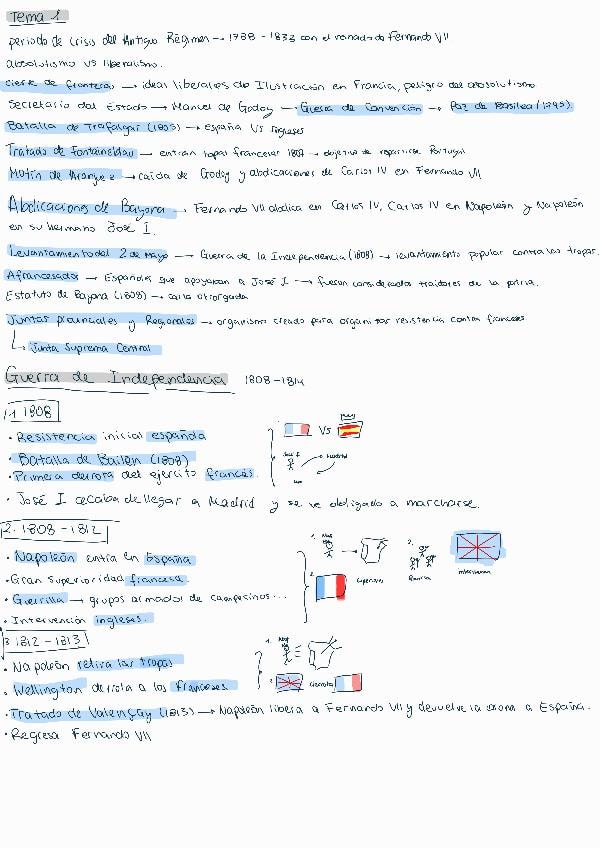 Tema 1
periodo de crisis del Antiguo Régimen → 1788 - 1833 con el reinado de Fernando VII
absolutismo vs liberalismo.
cierre de fronteras → ideas liberales de Ilustración en Francia, peligro del absolutismo
Secretario del Estado → Manuel de Godoy → Guerra de Convención → Paz de Basilea (1795)
Batalla de Trafalgar (1805) → España Vs ingleses
Tratado de Fontainebleau → entran tropas francesas 1807 → objetivo de repartirse Portugal
Motín de Aranjuez → caída de Godoy y abdicaciones de Carlos IV en Fernando VII
Abdicaciones de Bayona → Fernando VII abdica en Carlos IV, Carlos IV en Napoleón y Napoleón
en su hermano José I.
Levantamiento del 2 de Mayo → Guerra de la Independencia (1808) → levantamiento popular contra las tropas.
Afrancesados → Españoles que apoyaban a José I → fueron considerados traidores de la patria.
Estatuto de Bayona (1808) → carta otorgada
Juntas provinciales y Regionales → organismo creado para organizar resistencia contra franceses
↳ Junta Suprema Central
Guerra de Independencia 1808-1814
1. 1808
• Resistencia inicial española
Vs
• Batalla de Bailén (1808)
José I → Madrid
• Primera derrota del ejercito francés.
• José I acaba de llegar a Madrid y se ve obligado a marcharse.
2. 1808-1812
1. 2.
• Napoleón entra en España
• Gran superioridad francesa
3.
• Guerrilla → grupos armados de campesinos...
• Intervención ingleses.
3 1812-1813
1.
• Napoleón retira las tropas
• Wellington derrota a los franceses
2. derrota
• Tratado de Valençay (1813) → Napoleón libera a Fernando VII y devuelve la corona a España.
• Regresa Fernando VII